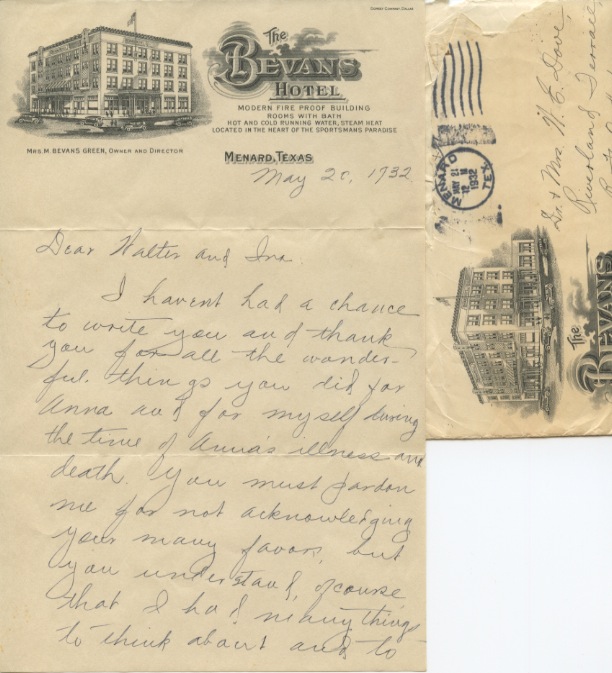 The
BEVANS
HOTEL
MODERN FIRE PROOF BUILDING
ROOMS WITH BATH
HOT AND COLD RUNNING WATER, STEAM HEAT
LOCATED IN THE HEART OF THE SPORTSMANS PARADISE
MRS. M. BEVANS GREEN, OWNER AND DIRECTOR
MENARD, TEXAS
May 20, 1932
Dear Walter and Ina.
I havent had a chance
to write you and thank
you for all the wonder-
ful things you did for
Anna and for myself during
the time of Anna's illness and
death. You must pardon
me for not acknowledging
your many favors, but
you understand, of course
that I had many things
to think about and to
MENARD
MAY 21
12 M
1932
TEX.
Dr & Mrs. W. E. Dove,
The
BEVANS